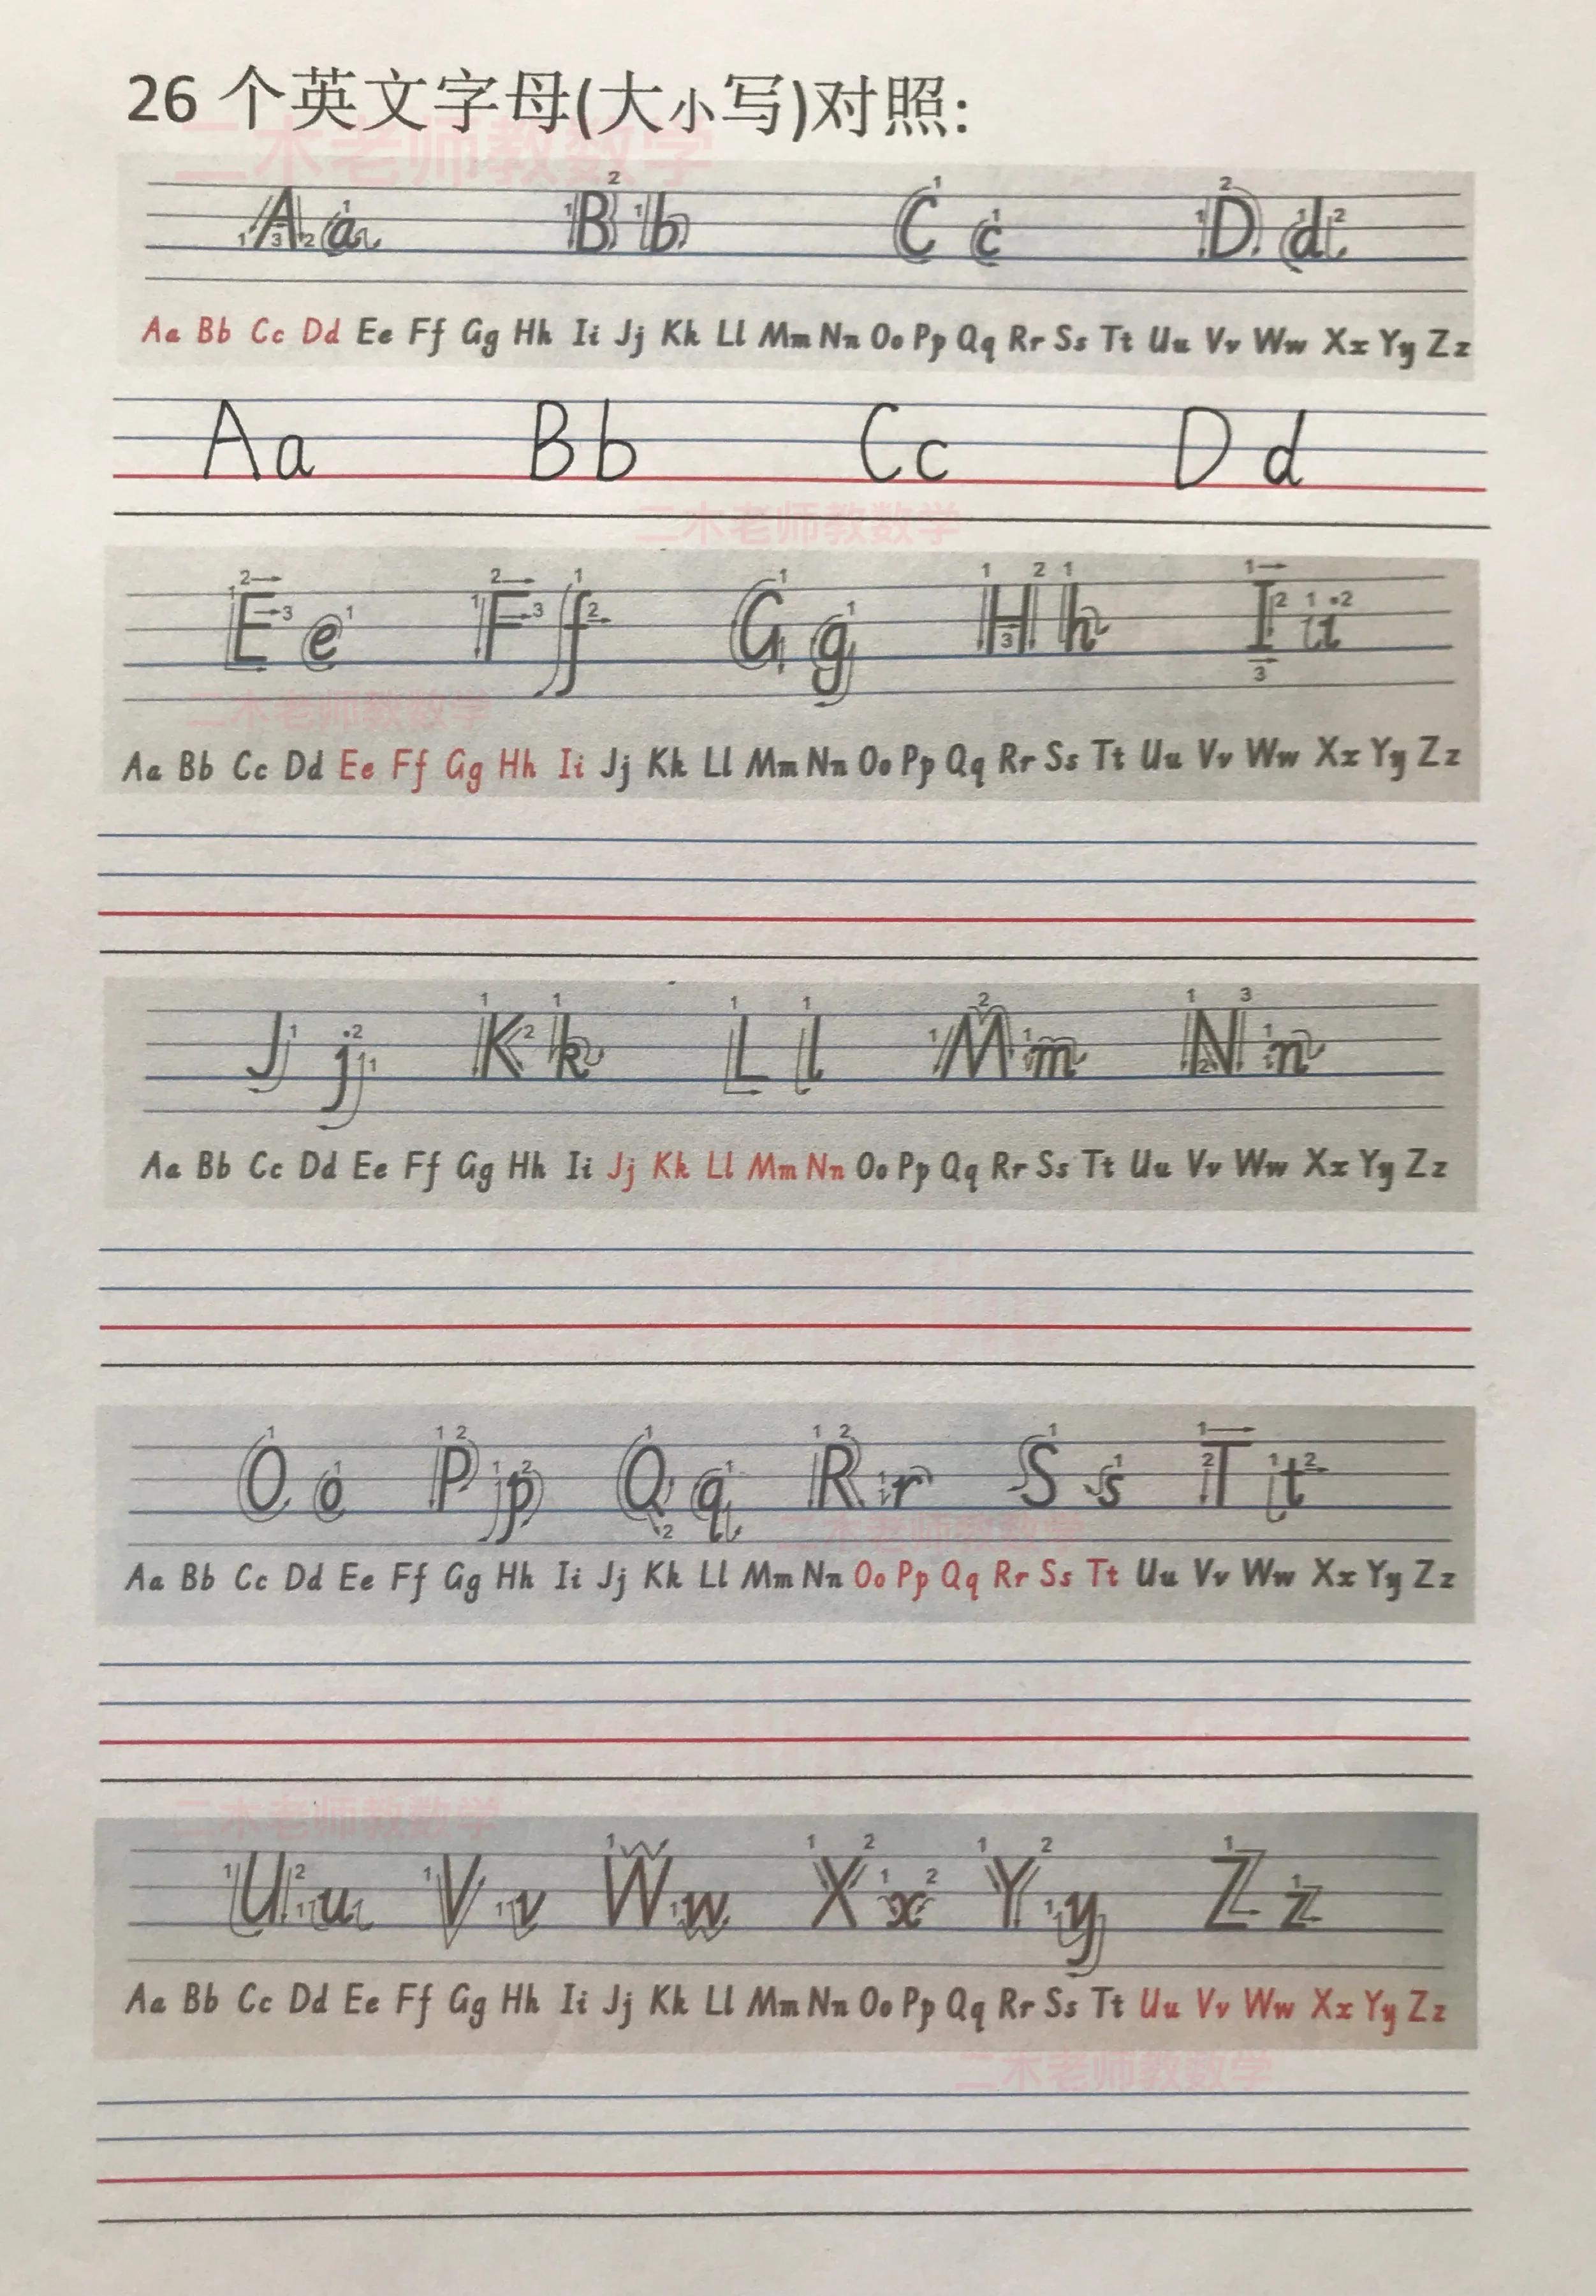 26 个英文字母(大小写)对照:
二木老师教数学
A a B b C c D d
Aa Bb Cc Dd Ee Ff Gg Hh Ii Jj Kk Ll Mm Nn Oo Pp Qq Rr Ss Tt Uu Vv Ww Xx Yy Zz
Aa Bb Cc Dd
二木老师教数学
E e F f G g H h I i
二木老师教数学
Aa Bb Cc Dd Ee Ff Gg Hh Ii Jj Kk Ll Mm Nn Oo Pp Qq Rr Ss Tt Uu Vv Ww Xx Yy Zz
J j K k L l M m N n
Aa Bb Cc Dd Ee Ff Gg Hh Ii Jj Kk Ll Mm Nn Oo Pp Qq Rr Ss Tt Uu Vv Ww Xx Yy Zz
O o P p Q q R r S s T t
二木老师教数学
Aa Bb Cc Dd Ee Ff Gg Hh Ii Jj Kk Ll Mm Nn Oo Pp Qq Rr Ss Tt Uu Vv Ww Xx Yy Zz
二木老师教数学
U u V v W w X x Y y Z z
Aa Bb Cc Dd Ee Ff Gg Hh Ii Jj Kk Ll Mm Nn Oo Pp Qq Rr Ss Tt Uu Vv Ww Xx Yy Zz
二木老师教数学